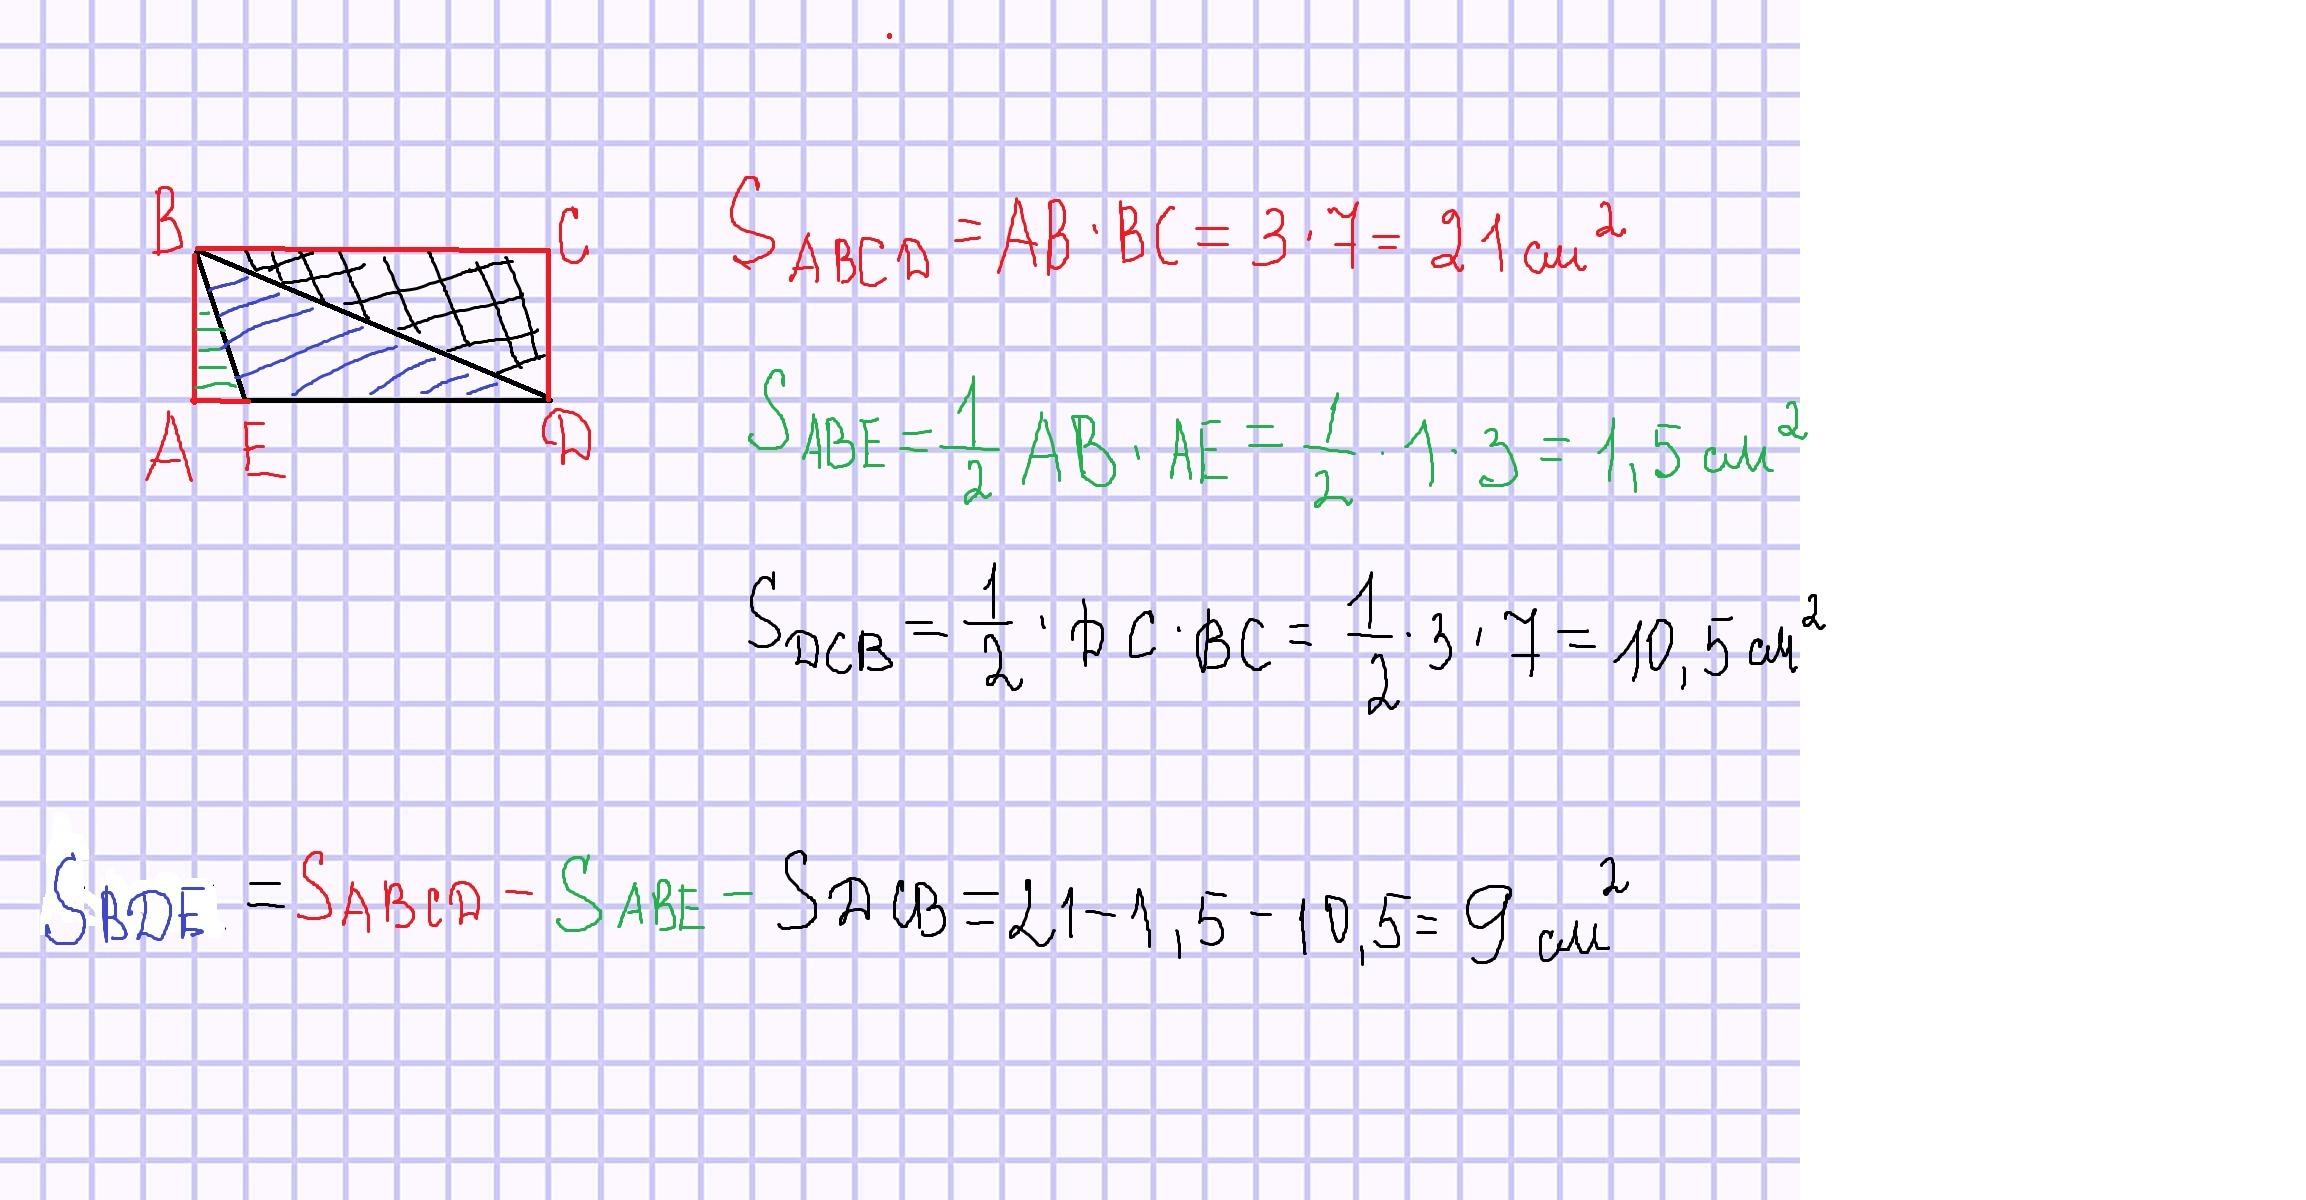 B C
A E D
S ABCD = AB · BC = 3 · 7 = 21 см²
S ABE = 1/2 AB · AE = 1/2 · 1 · 3 = 1,5 см²
S DCB = 1/2 · DC · BC = 1/2 · 3 · 7 = 10,5 см²
S BDE = S ABCD - S ABE - S DCB = 21 - 1,5 - 10,5 = 9 см²